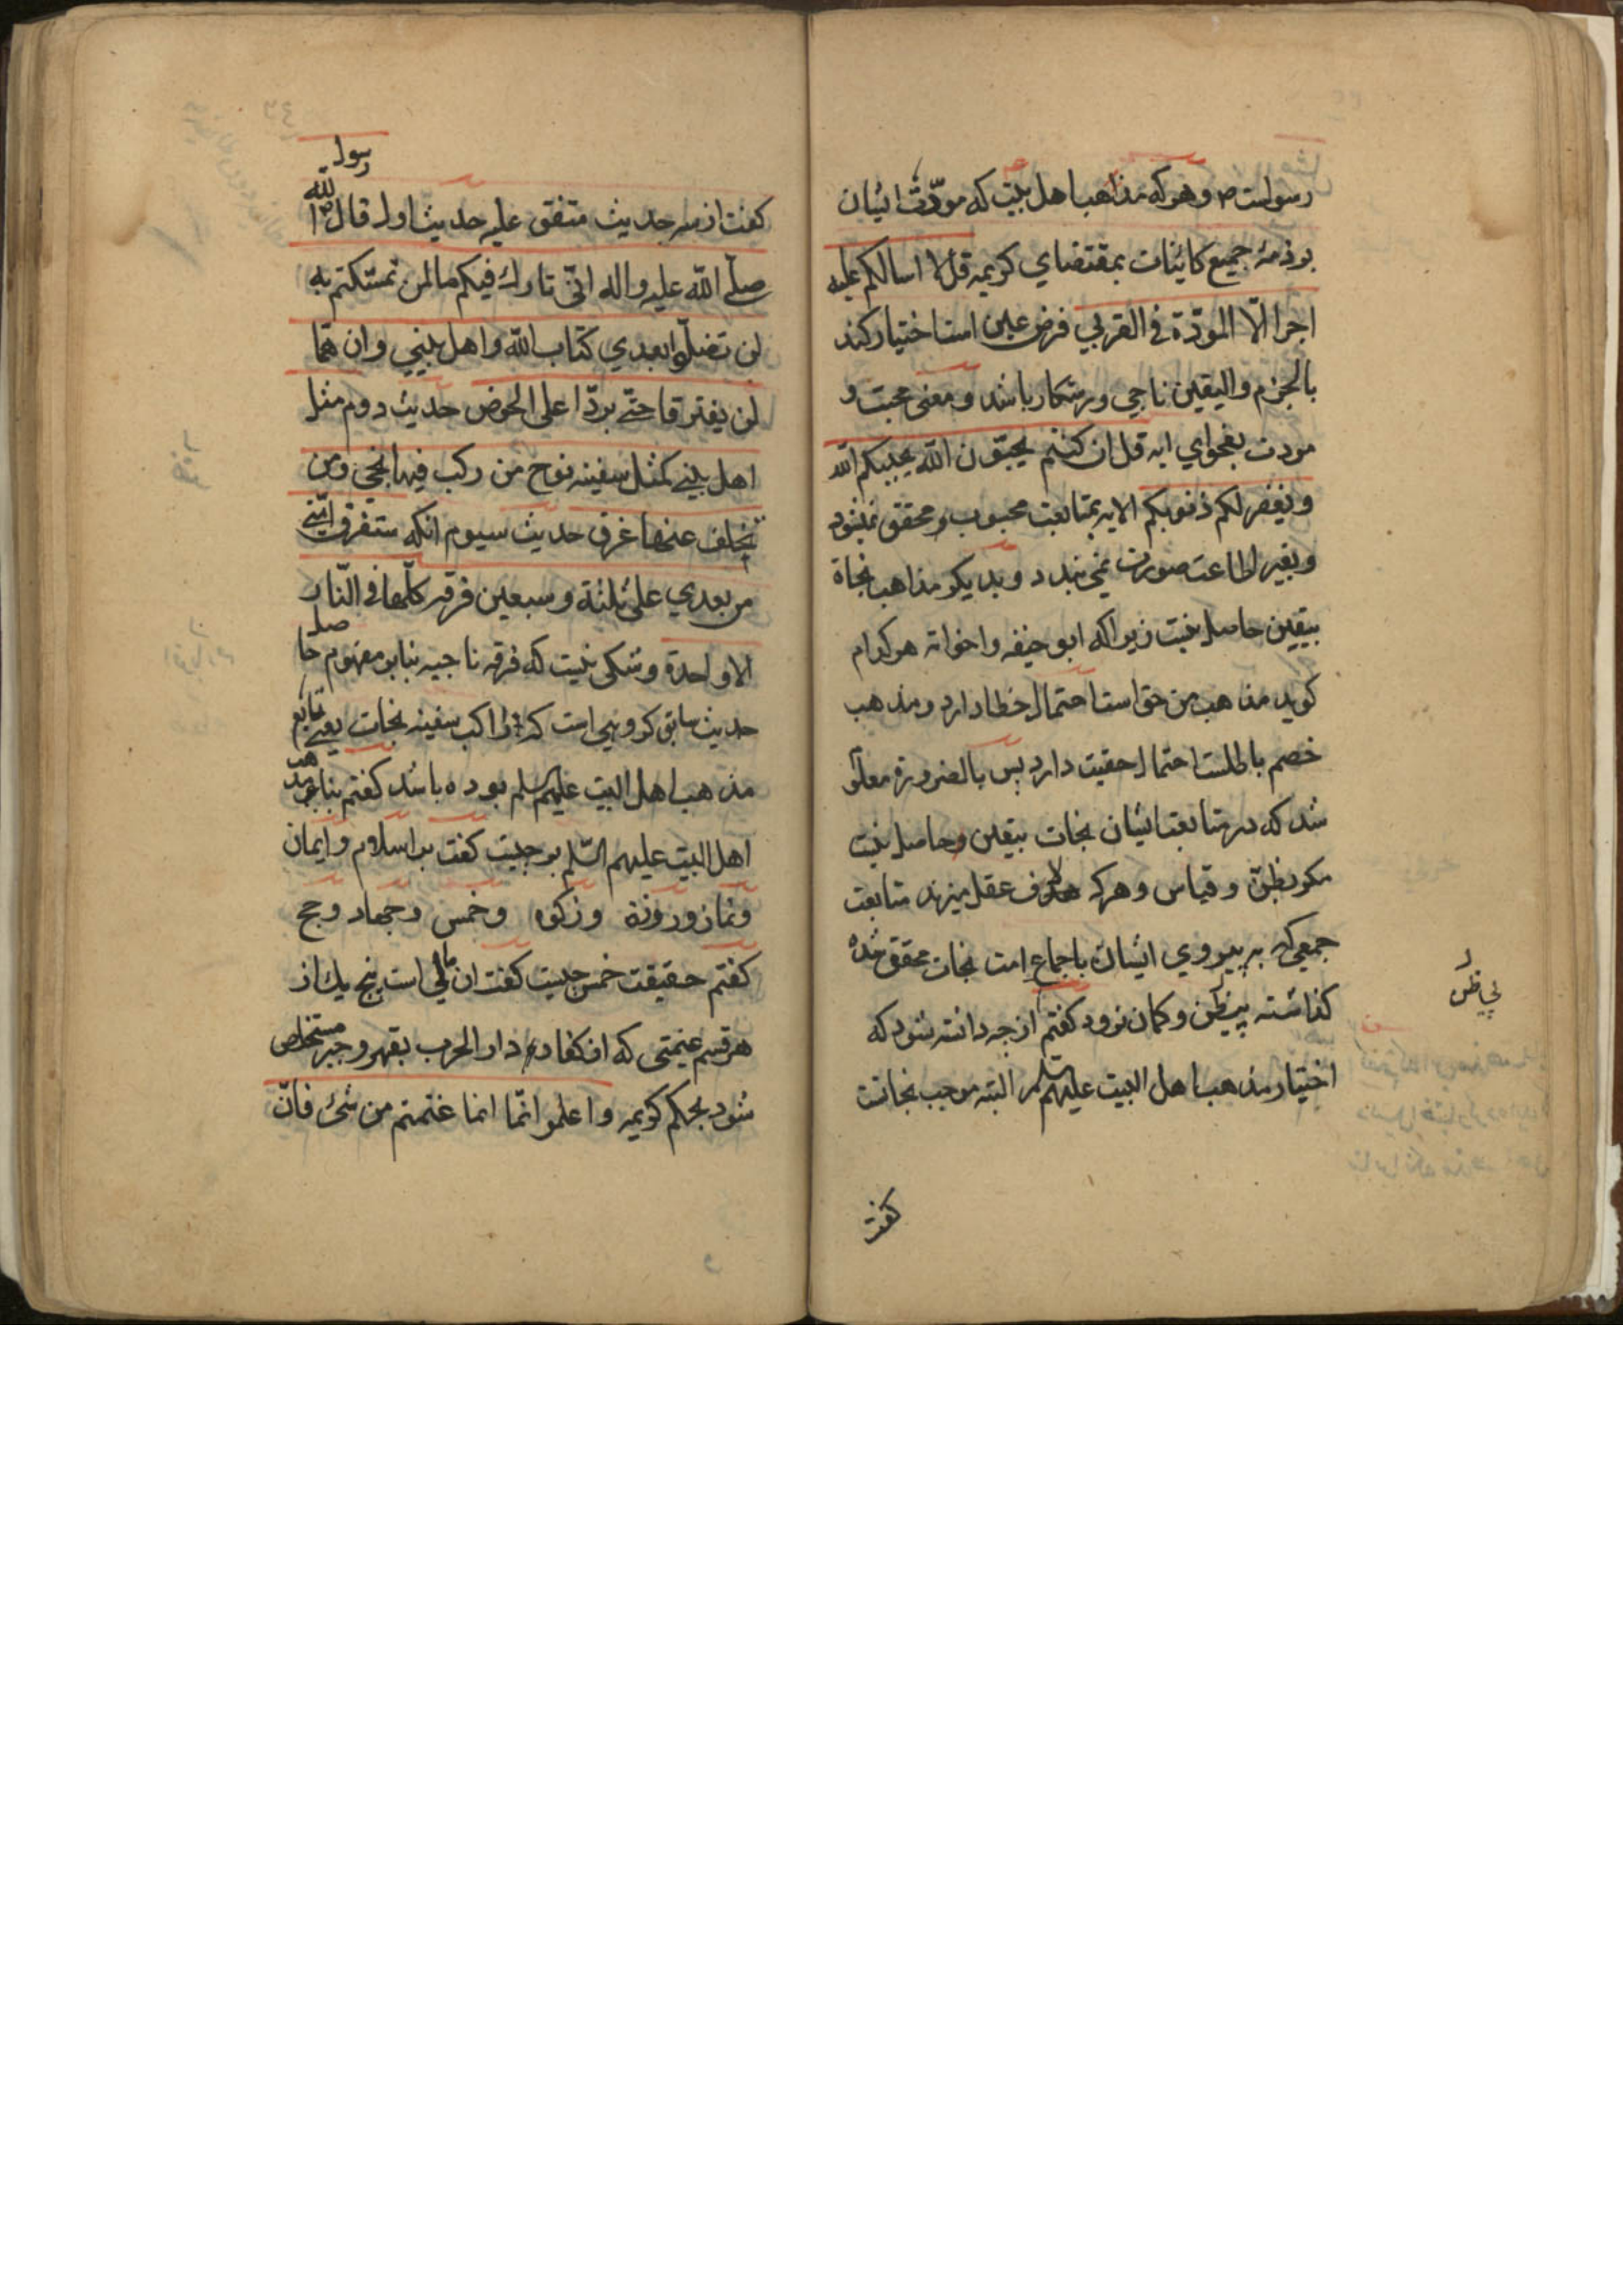 رسولست ص و هر که مذاهب اهل بیت که مودّت ایشان
بر ذمهٔ جمیع کاینات بمقتضای کریمه قل لا اسالکم علیه
اجرا الّا المودّة فی القربی فرض عین است اختیار کند
بالجزم و الیقین ناجی و رستکار باشد و معنی محبت و
مودت بفحوای ایه قل ان کنتم تحبّون اللّه یحببکم اللّه
و یغفر لکم ذنوبکم الایه بمتابعت محبوب و محقق نمیشود
و بغیر اطاعت صورت نمی بندد و بدیکر مذاهب نجاة
بیقین حاصل نیست زیرا که ابو حنیفه و اخواته هر کدام
کوید مذاهب من حق است احتمال خطا دارد و مذهب
خصم باطلست احتمال حقیت دارد پس بالضرورة معلو
شد که در متابعت ایشان نجات بیقین و حاصل نیست
مکر بظنّ و قیاس و هر که لاف عقل میزند متابعت
جمعی که بر پیروی ایشان باجماع امت نجات محقق شده
کذاشته پی ظن و کمان نرود کفتم از چه دانسته شود که
اختیار مذهب اهل البیت علیهم السلم البته موجب نجاتست
کفت
کفت از سه حدیث متفق علیه حدیث اول قال رسول اللّه
صلّی اللّه علیه و اله انّی تارک فیکم ما لمن تمسّکتم به
لن تضلّوا بعدی کتاب اللّه و اهل بیتی و ان هما
لن یفترقا حتّی یردّا علی الحوض حدیث دوم مثل
اهل بیتی کمثل سفینه نوح من رکب فیها نجی و من
تخلف عنها غرق حدیث سیوم انکه ستفرق امّتی
من بعدی علی ثلثة و سبعین فرقه کلّها فی النّار
الا واحدة و شکی نیست که فرقه ناجیه بنابر مفهوم حاصل
حدیث سابق کروهی است که راکب سفینه نجات یعنی تابع
مذهب اهل البیت علیهم السلم بوده باشد کفتم بنای مذهب
اهل البیت علیهم السّلم بر چیست کفت بر اسلام و ایمان
و نماز و روزه و زکوه و خمس و جهاد و حج
کفتم حقیقت خمس چیست کفت ان مالی است پنج یک از
هر قسم غنیمتی که از کفار دار الحرب بقهر و جبر مستخلص
شود بحکم کریمه و اعلموا انّما انما غنمتم من شئ فانّ